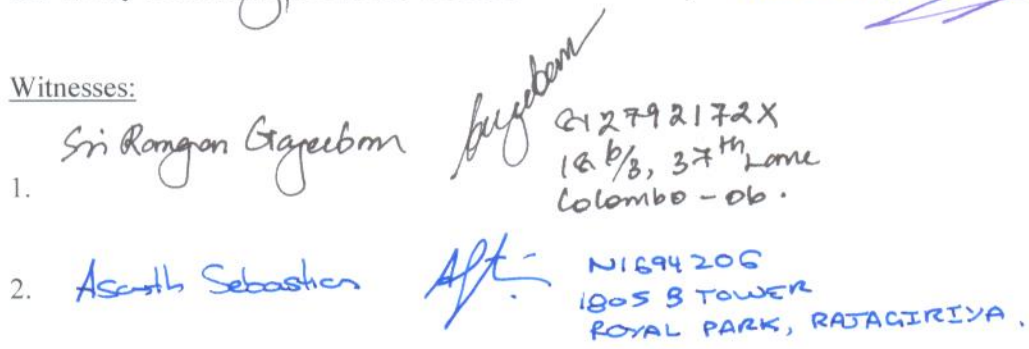 Witnesses:
1. Sri Rangan Gajeeban
812792172X
18 6/3, 37th Lane
Colombo - 06.
2. Sebastian
N1694206
1805 B TOWER
ROYAL PARK, RAJAGIRIYA.